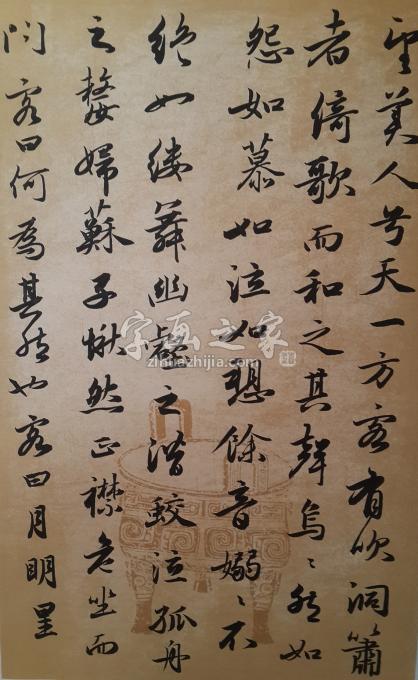 望美人兮天一方客有吹洞簫
者倚歌而和之其聲烏〻然如
怨如慕如泣如愬餘音嫋〻不
絕如縷舞幽壑之潛蛟泣孤舟
之嫠婦蘇子愀然正襟危坐而
问客曰何為其然也客曰月明星
字画之家
zihuazhijia.com